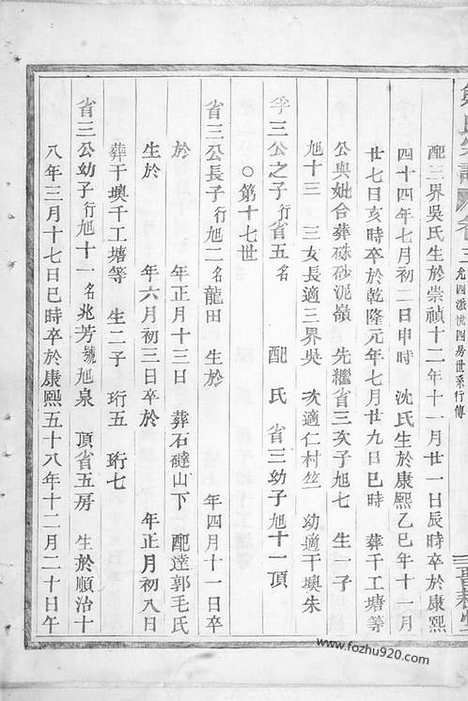 氏宗譜 卷三
配三界吳氏生於崇禎十二年十一月廿一日辰時卒於康熙
四十四年七月初二日申時 沈氏生於康熙乙巳年十一月
廿七日亥時卒於乾隆元年七月廿九日巳時 葬千工塘等
公與妣合葬硃砂泥嶺 先繼省三次子旭七 生一子
旭十三 三女長適三界吳 次適仁村竺 幼適干墺朱
孚三公之子行省五名 配 氏 省三幼子旭十一頂
○第十七世
省三公長子行旭二名龍田 生於 年四月十一日卒
於 年正月十三日 葬石礎山下 配達郭毛氏
生於 年六月初三日卒於 年正月初八日
葬干墺千工塘等 生二子 珩五 珩七
省三公幼子行旭十一名兆芳號旭泉 頂省五房 生於順治十
八年三月十七日巳時卒於康熙五十八年十二月二十日午
www.fozhu920.com